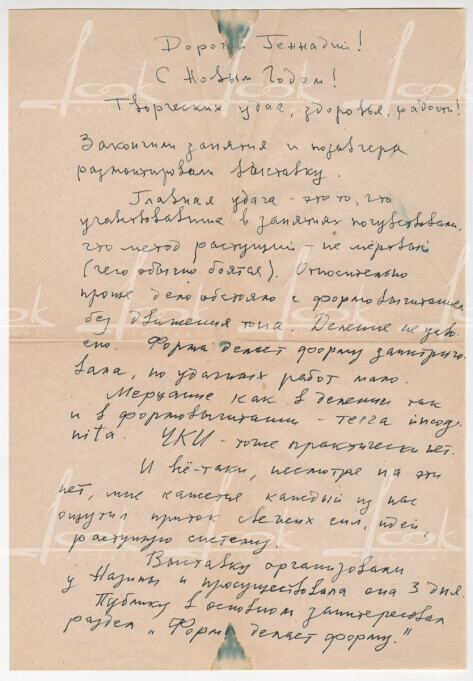 Дорогой Геннадий!
С Новым Годом!
Творческих удач, здоровья, радости!
Закончили занятия и позавчера
размонтировали выставку.
Главная удача - это то, что
участвовавшие в занятиях почувствовали,
что метод растущий - не мертвый
(чего обычно боятся). Относительно
проще дело обстояло с формовычитанием
без движения тона. Деление не усво-
ено. Форма делает форму заинтриго-
вала, но удачных работ мало.
Мерцание как в делении так
и в формовычитании - terra incog-
nita. ЧКИ - тоже практически нет.
И всё-таки, несмотря на эти
нет, мне кажется каждый из нас
ощутил приток свежих сил, идей,
растущую систему.
Выставку организовали
у и просуществовала она 3 дня.
Публику в основном заинтересовал
раздел „Форма делает форму."
look